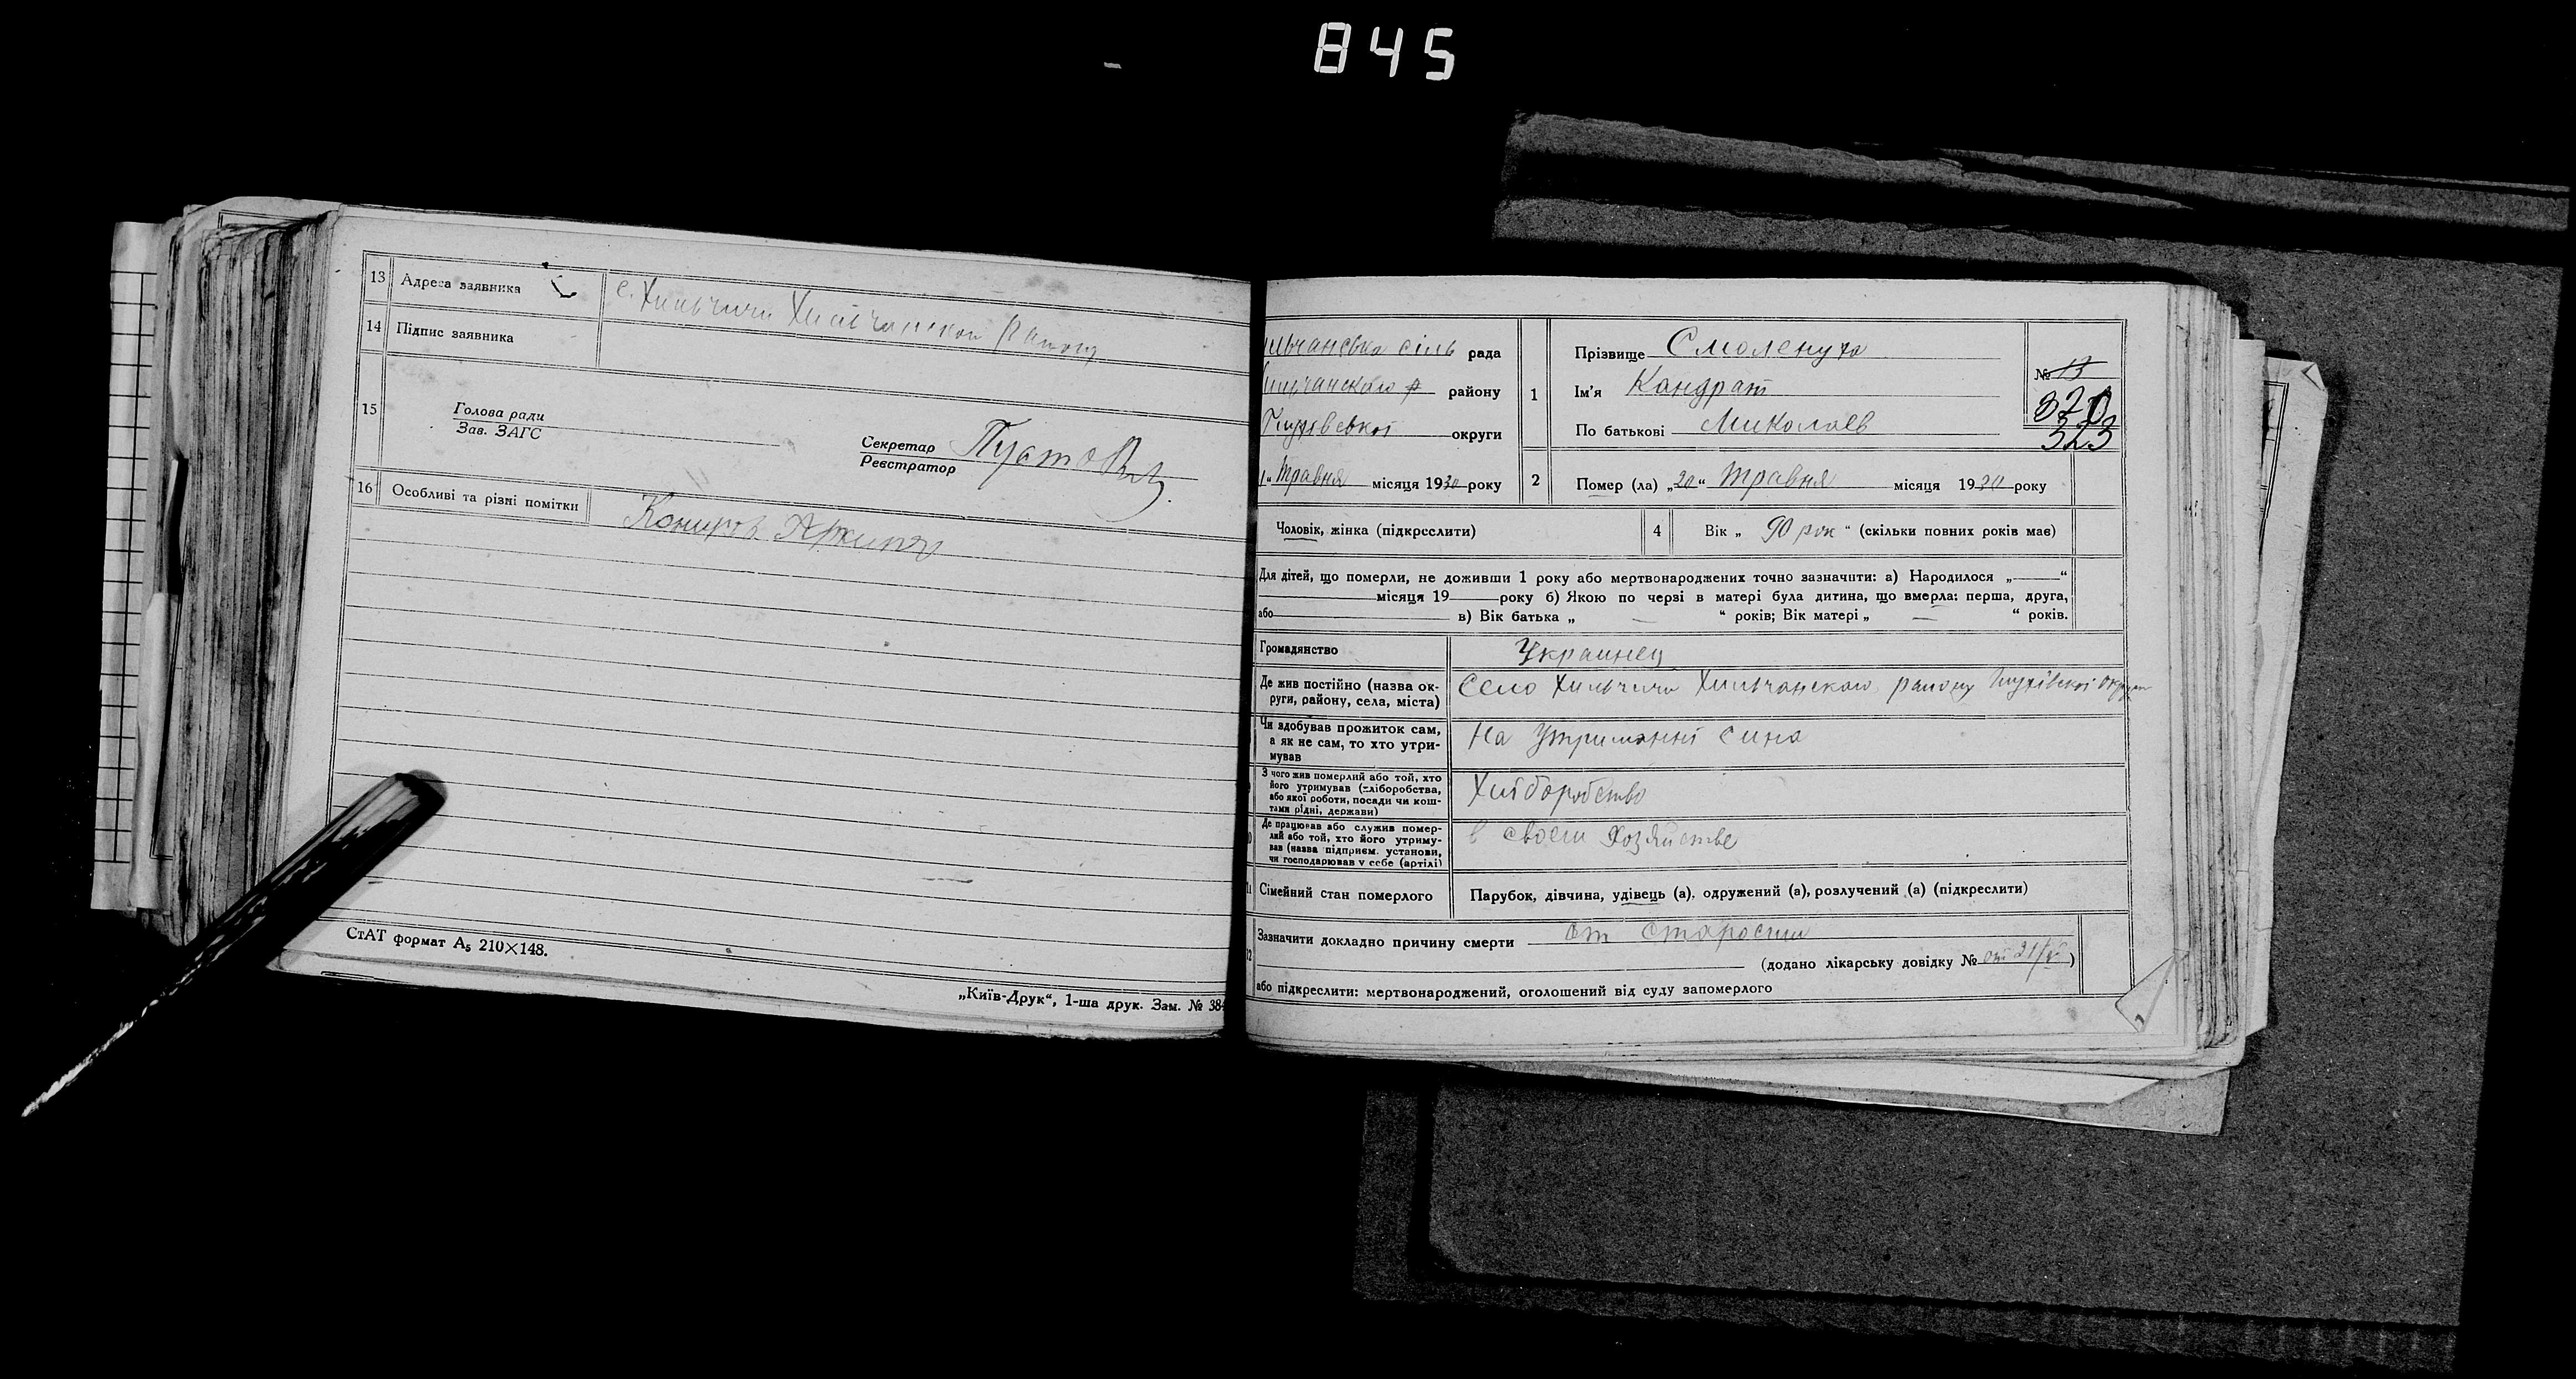 845
13 Адреса заявника с. Хильчичи Хильчанской району
14 Підпис заявника
15 Голова ради
Зав. ЗАГС
Секретар
Реєстратор
16 Особливі та різні помітки
СтАТ формат А₅ 210×148.
„Київ-Друк“, 1-ша друк. Зам. № 384
ильчанська сіль рада
району
Глухівської округи
травня місяця 1930 року
1 Прізвище Смоленуха
Ім'я Кандрат
По батькові Миколаев
№ 13
320
323
2 Помер (ла) „20“ травня місяця 1930 року
Чоловік, жінка (підкреслити)
4 Вік „ 90 рок “ (скільки повних років має)
Для дітей, що померли, не доживши 1 року або мертвонароджених точно зазначити: а) Народилося „ — “
місяця 19 року б) Якою по черзі в матері була дитина, що вмерла: перша, друга,
або в) Вік батька „ — “ років; Вік матері „ — “ років.
Громадянство Украинец
Де жив постійно (назва ок-
руги, району, села, міста)
Село Хильчичи Хильчанского району Глухівскої округи
Чи здобував прожиток сам,
а як не сам, то хто утри-
мував
На Утриманні сина
З чого жив померлий або той, хто
його утримував (хліборобства,
або якої роботи, посади чи кош-
тами рідні, держави)
Хліборобство
10 Де працював або служив помер-
лий або той, хто його утриму-
вав (назва підприєм. установи,
чи господарював у себе (артілі)
в своем хозяйстве
11 Сімейний стан померлого Парубок, дівчина, удівець (а), одружений (а), розлучений (а) (підкреслити)
12 Зазначити докладно причину смерти от старости
(додано лікарську довідку № от 21/)
або підкреслити: мертвонароджений, оголошений від суду запомерлого